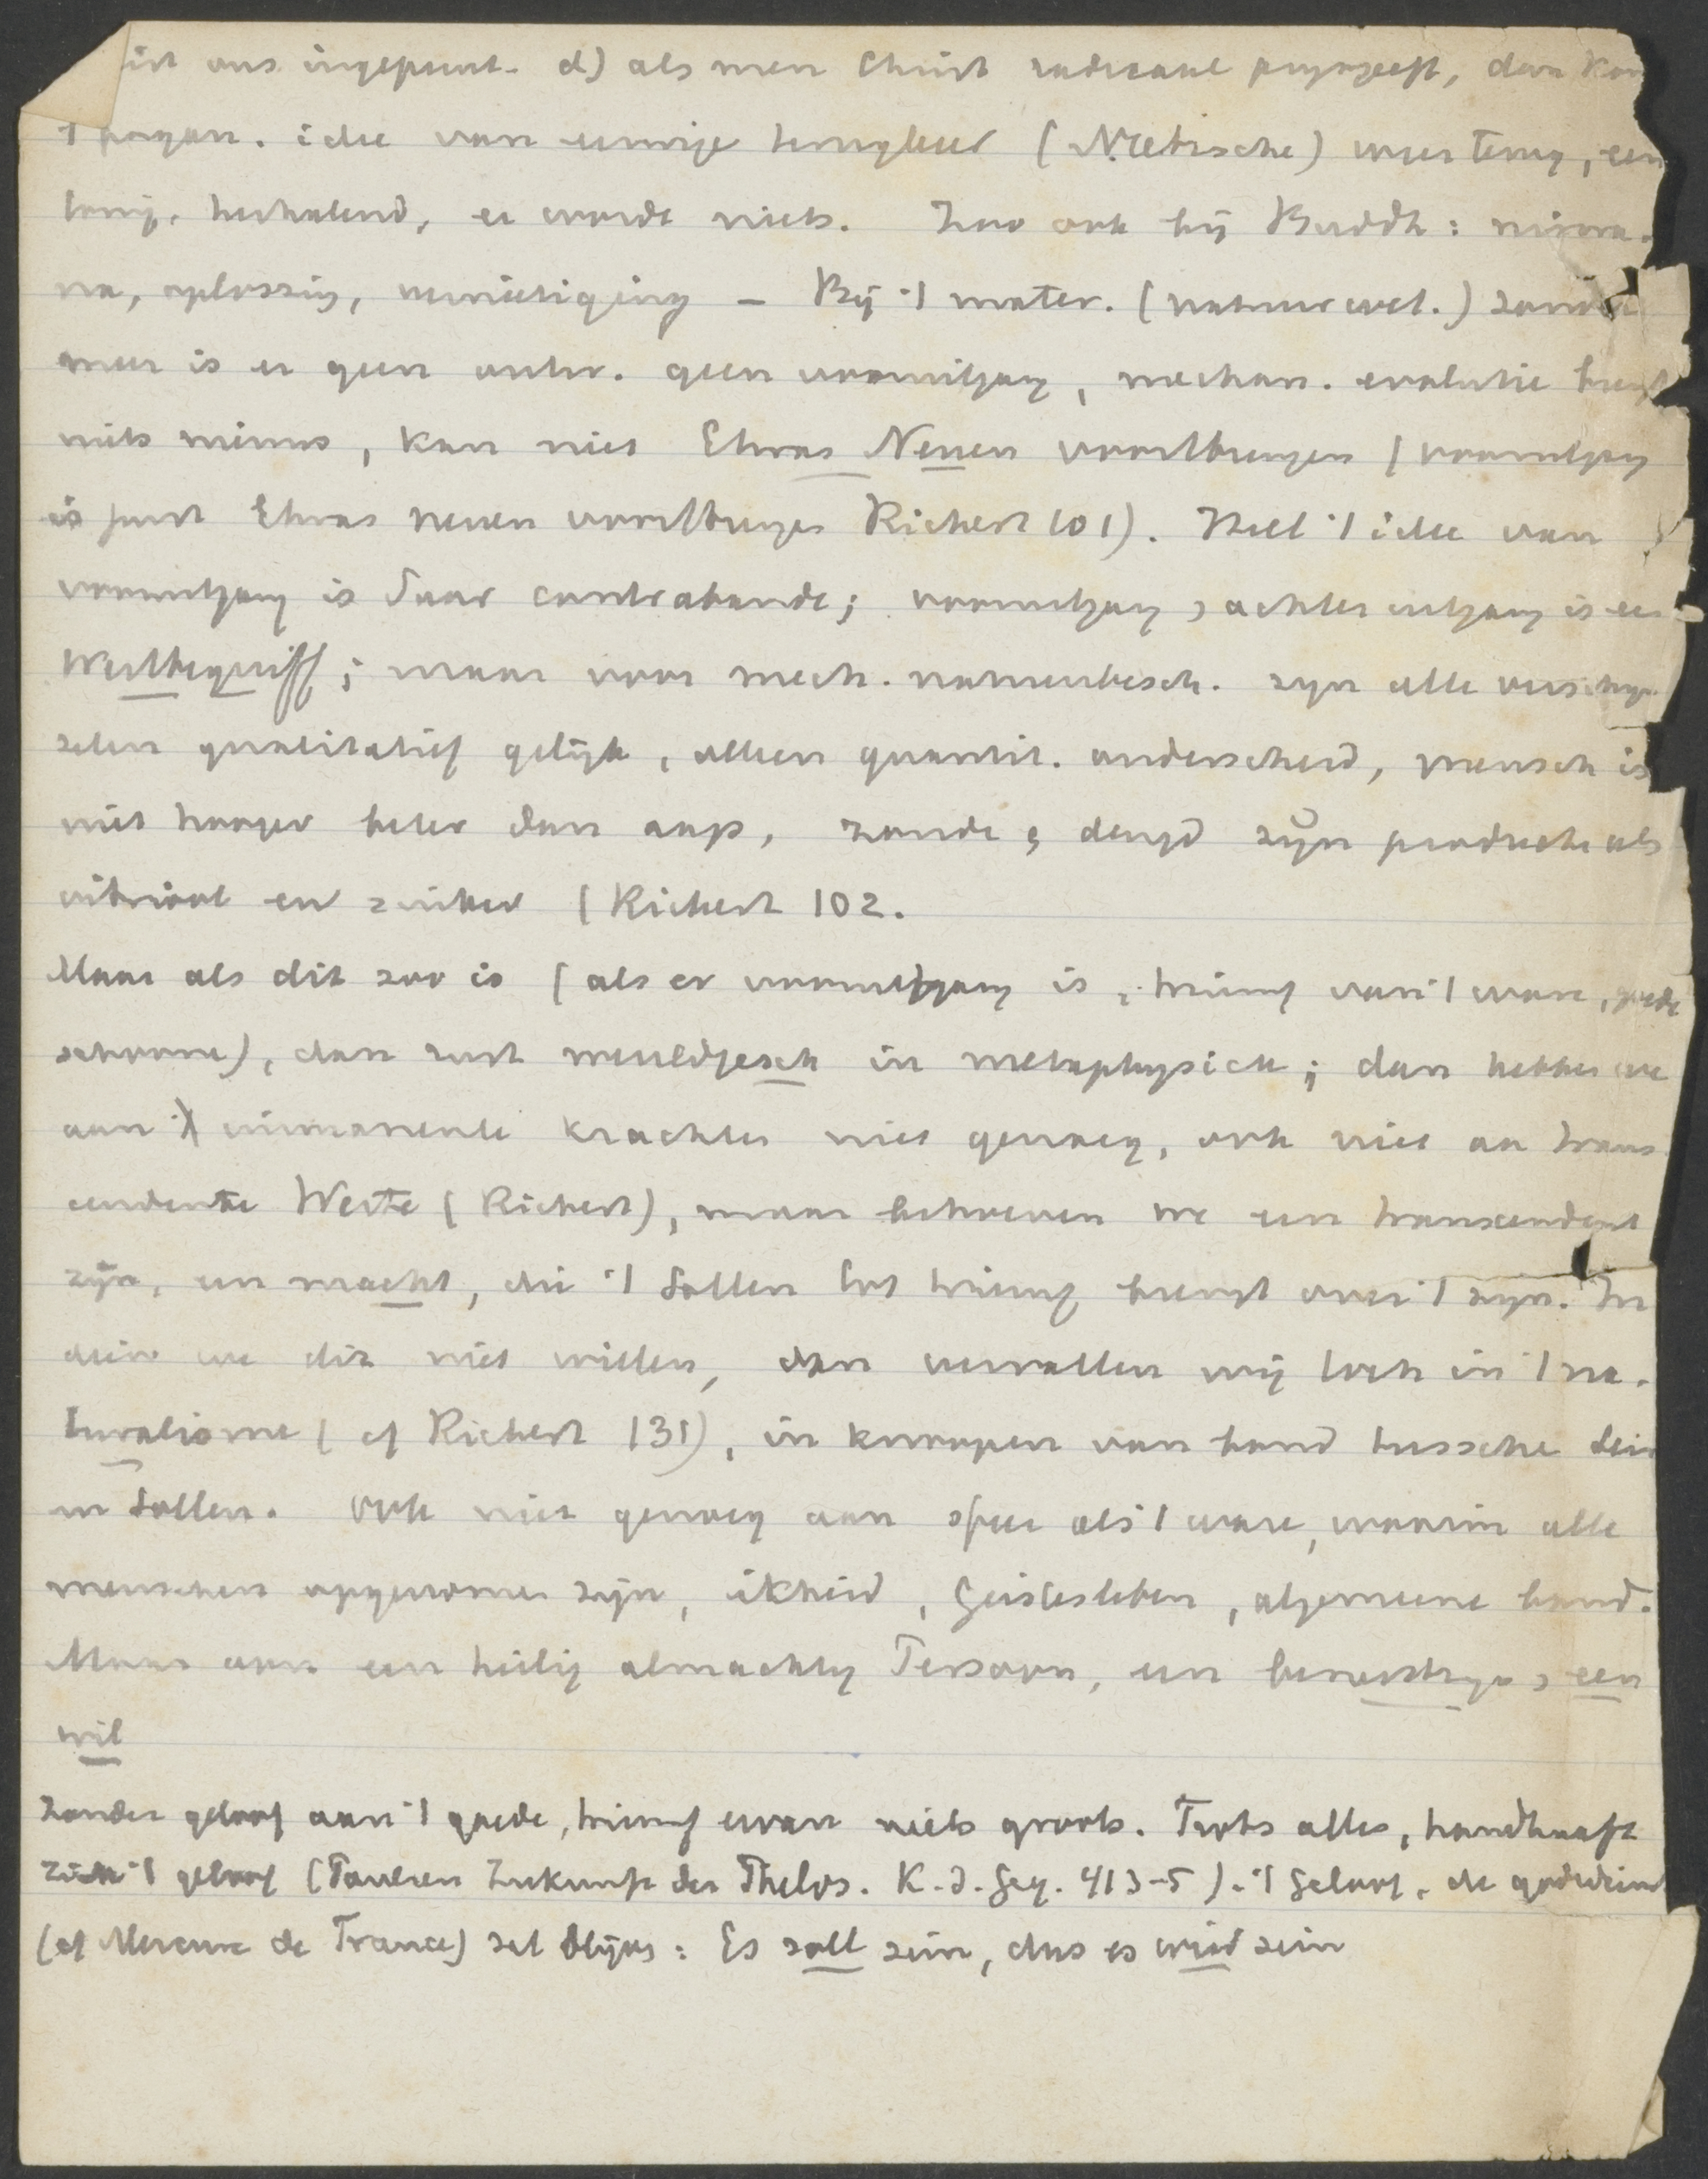 ons ingeprent. d) als men Christ radicaal prysgeeft, dan kom
't pagan. idee van eeuwige terugkeer (Nietzsche) weer terug, een
herhalend, er wordt niets. Zoo ook bij Buddh: nirwa-
na, oplossing, vernietiging – Bij 't mater. (natuurwet.) zonder
meer is er geen ontw. geen vooruitgang, mechan. evolutie brengt
niets nieuws, kan niet Etwas Neues voortbrengen (vooruitgang
is juist Etwas neues voortbrengen Richert 101). Heel 't idee van
vooruitgang is daar contrabande; vooruitgang, achteruitgang is een
Werthbegriff; maar voor mech. natuurbesch. zyn alle verschyn
selen qualitatief gelijk, alleen quantit. onderscheid, mensch is
niet hooger beter dan aap, zonde & deugd zijn producten als
vitriool en suiker (Richert 102.
Maar als dit zoo is (als er vooruitgang is, triumf van 't ware, goede
schoone), dan rust wereldgesch in metaphysick; dan hebben we
aan immanente krachten niet genoeg, ook niet aan trans
cendente Werte (Richert), maar behoeven we een transcendent
zijn, een macht, die 't Sollen tot triumf brengt over 't zijn. In
dien we dit niet willen, dan vervallen wij toch in 't na-
turalisme (cf Richert 131), in knoopen van band tussche Sein
en Sollen. Ook niet genoeg aan sfeer als 't ware, waarin alle
menschen opgenomen zijn, ikheid, Geistesleben, algemeene band.
Maar aan een heilig almachtig Persoon, een bewustzyn, een
wil
Zonder geloof aan 't goede, triumf ervan niets groots. Trots alles, handhaaft
zich 't geloof (Paulsen Zukunft der Philos. K.d.Geg. 413-5). 't Geloof, de godsdienst
(cf Mercure de France) zal blijven: Es soll sein, dus es wird sein